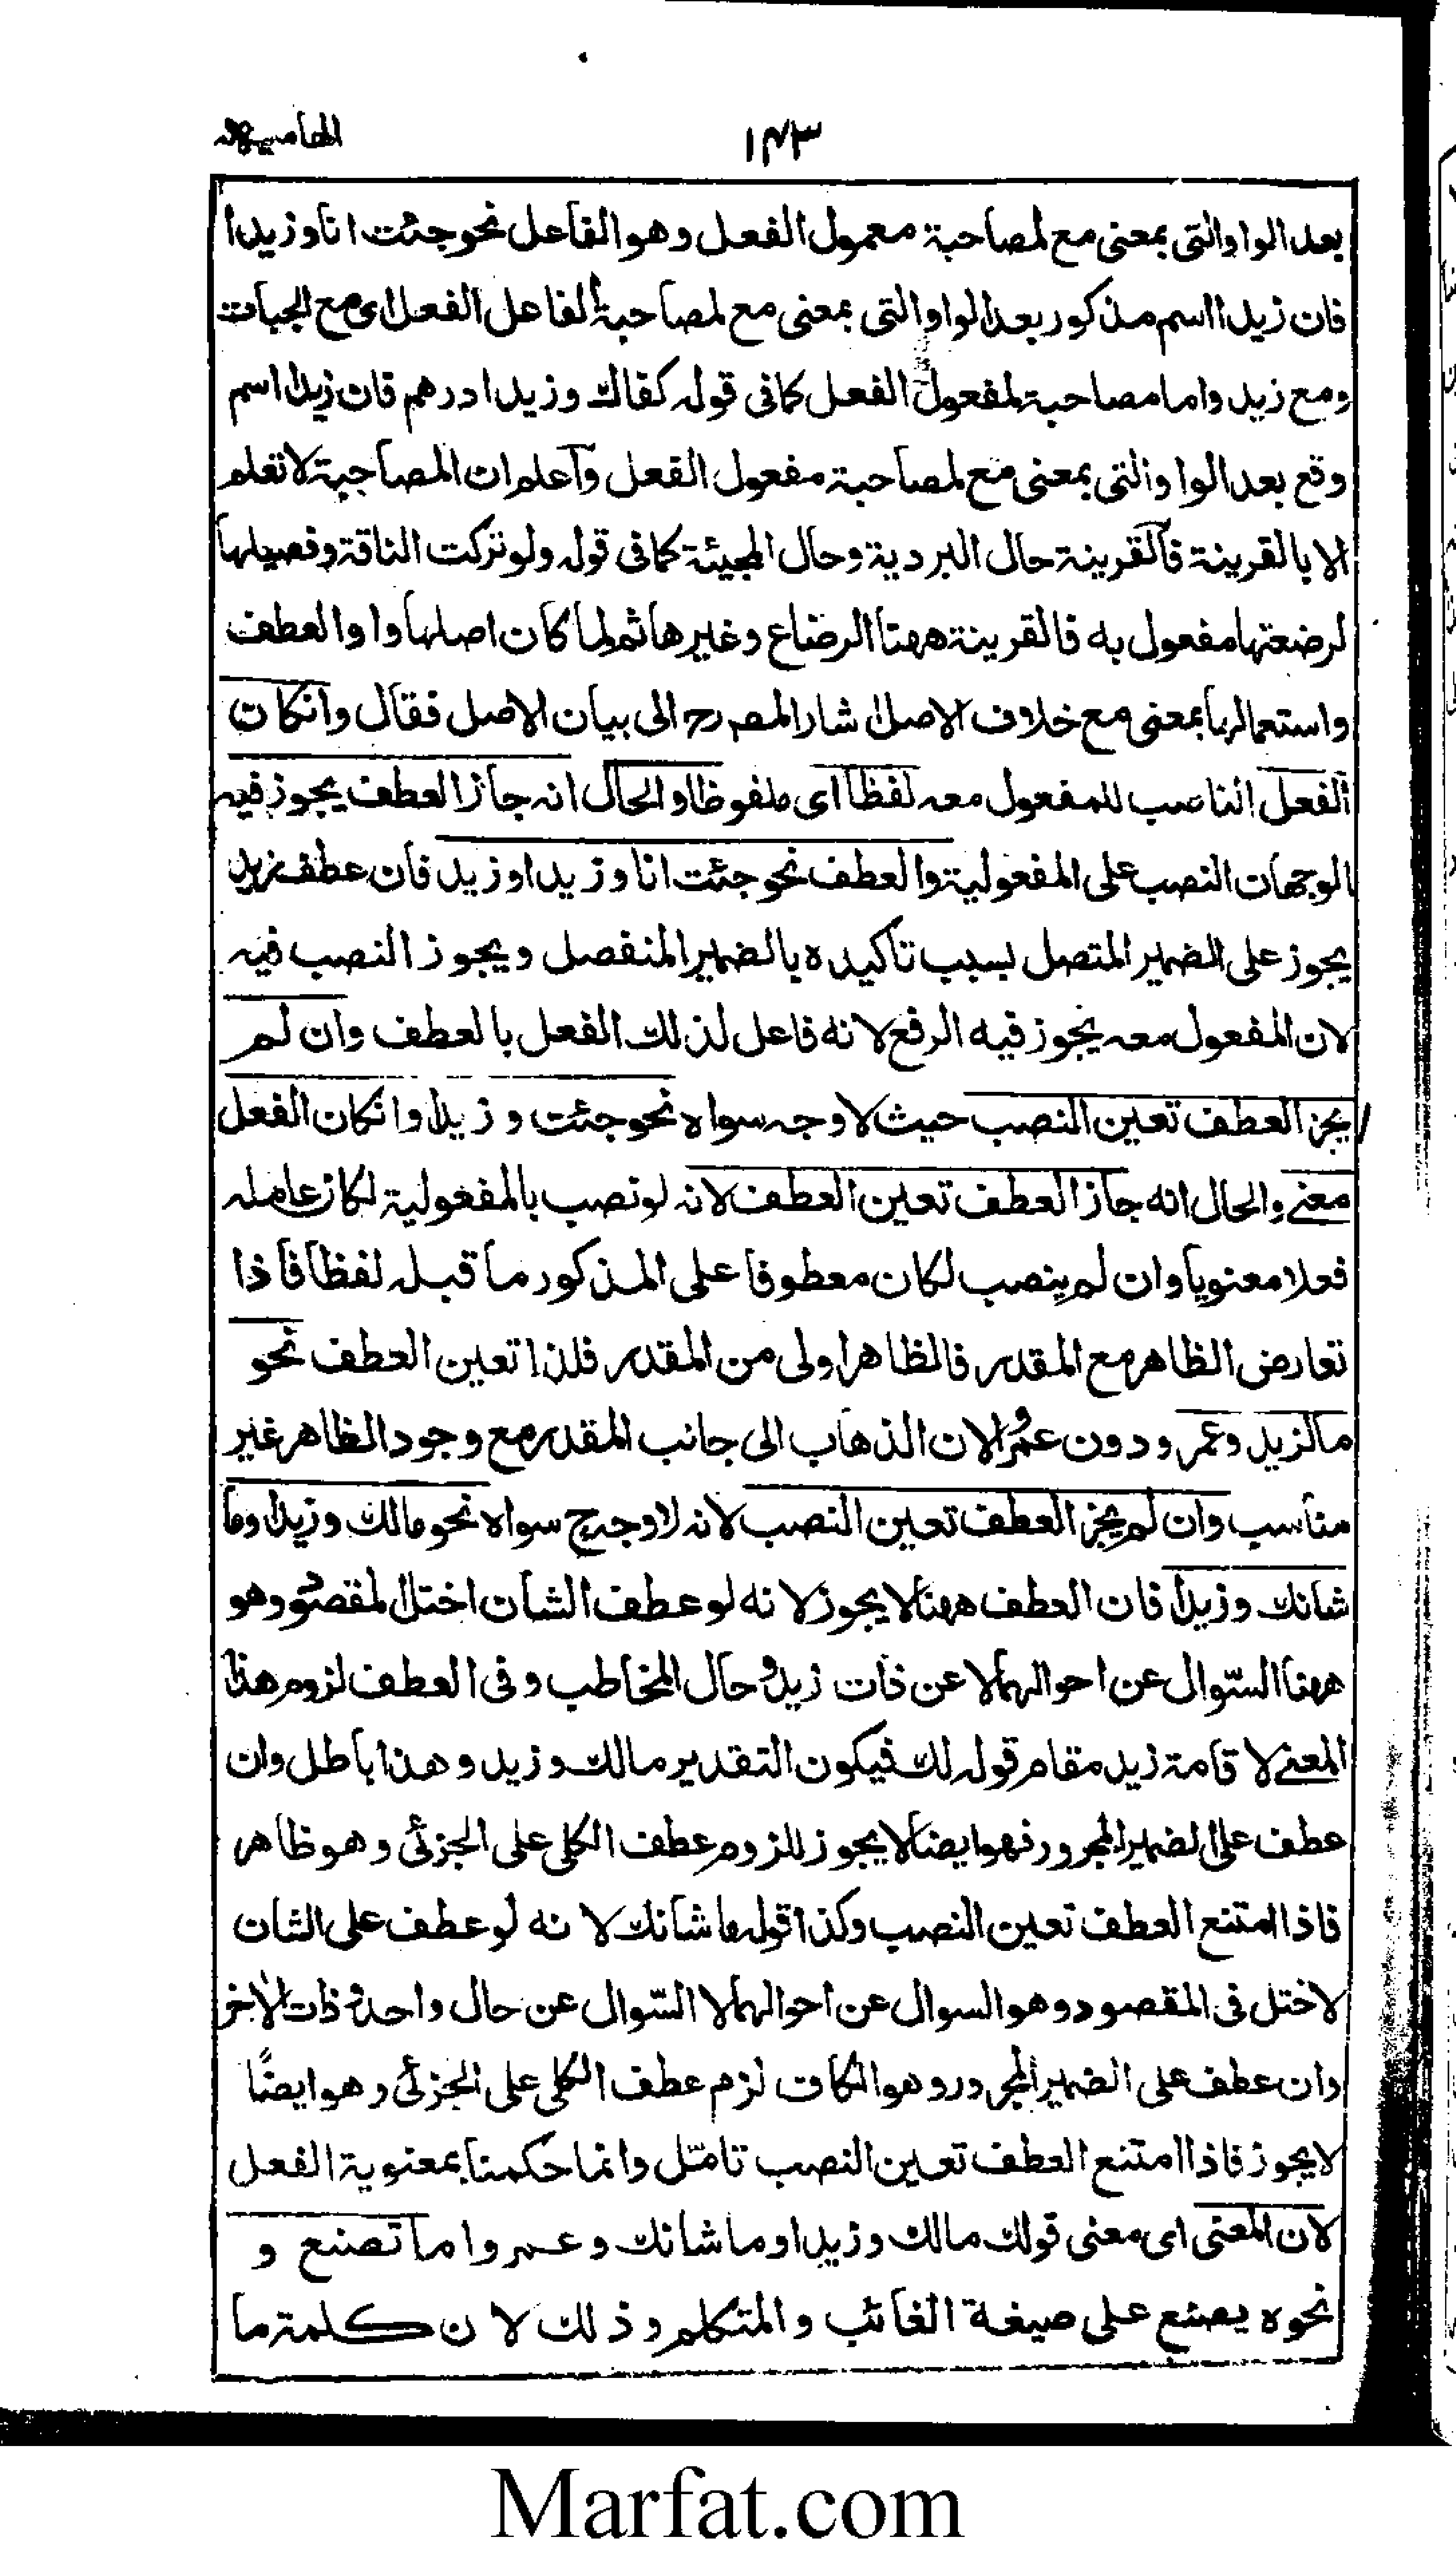 ١٤٣
بعد الواو التى بمعنى مع لمصاحبة معمول الفعل وهو الفاعل نحو جئت انا وزيدا
فان زيدا اسم مذكور بعد الواو التى بمعنى مع لمصاحبة الفاعل الفعل اى مع
ومع زيد واما مصاحبة لمفعول الفعل كما فى قوله كفاك وزيدا درهم فان زيدا اسم
وقع بعد الواو التى بمعنى مع لمصاحبة مفعول الفعل واعلم ان المصاحبة لا تعلم
الا بالقرينة فالقرينة حال البردية وحال المجيئة كما فى قوله ولو تركت الناقة وفصيلها
لرضعتها مفعول به فالقرينة ههنا الرضاع وغيرها ثم لما كان اصلها واو العطف
واستعمالها بمعنى مع خلاف الاصل اشار المصرح الى بيان الاصل فقال وانكان
الفعل الناصب للمفعول معه لفظا اى ملفوظا والحال انه جاز العطف يجوز فيه
الوجهان النصب على المفعولية والعطف نحو جئت انا وزيدا وزيد فان عطف زيد
يجوز على الضمير المتصل بسبب تاكيده بالضمير المنفصل ويجوز النصب فيه
لان المفعول معه يجوز فيه الرفع لانه فاعل لذلك الفعل بالعطف وان لم
يجز العطف تعين النصب حيث لا وجه سواه نحو جئت وزيدا وانكان الفعل
معنے والحال انه جاز العطف تعين العطف لانه لو نصب بالمفعولية لكان عامله
فعلا معنويا وان لم ينصب لكان معطوفا على المذكور ما قبله لفظا فاذا
تعارض الظاهر مع المقدر فالظاهر اولى من المقدر فلذا تعين العطف نحو
ما لزيد وعمرو دون عمرا لان الذهاب الى جانب المقدر مع وجود الظاهر غير
مناسب وان لم يجز العطف تعين النصب لانه لا وجه سواه نحو مالك وزيدا وما
شانك وزيدا فان العطف ههنا لا يجوز لانه لو عطف الشان اختل لمقصود وهو
ههنا السّوال عن احوالهما لا عن ذات زيد وحال المخاطب وفى العطف لزوم هذا
المعنے لاقامة زيد مقام قوله لك فيكون التقدير مالك وزيد وهذا باطل وان
عطف على الضمير المجرور فهو ايضا لا يجوز للزوم عطف الكلى على الجزئى وهو ظاهر
فاذا امتنع العطف تعين النصب وكذا قوله ما شانك لانه لو عطف على الشان
لاختل فى المقصود وهو السوال عن احوالهما لا السّوال عن حال واحد وذات الاخر
وان عطف على الضمير المجرور وهو الكاف لزم عطف الكلى على الجزئى وهو ايضًا
لا يجوز فاذا امتنع العطف تعين النصب تامّل وانما حكمنا بمعنوية الفعل
لان المعنى اى معنى قولك مالك وزيدا وما شانك وعمروا ما تصنع و
نحوه يصنع على صيغة الغائب والمتكلم وذلك لان كلمة ما
Marfat.com